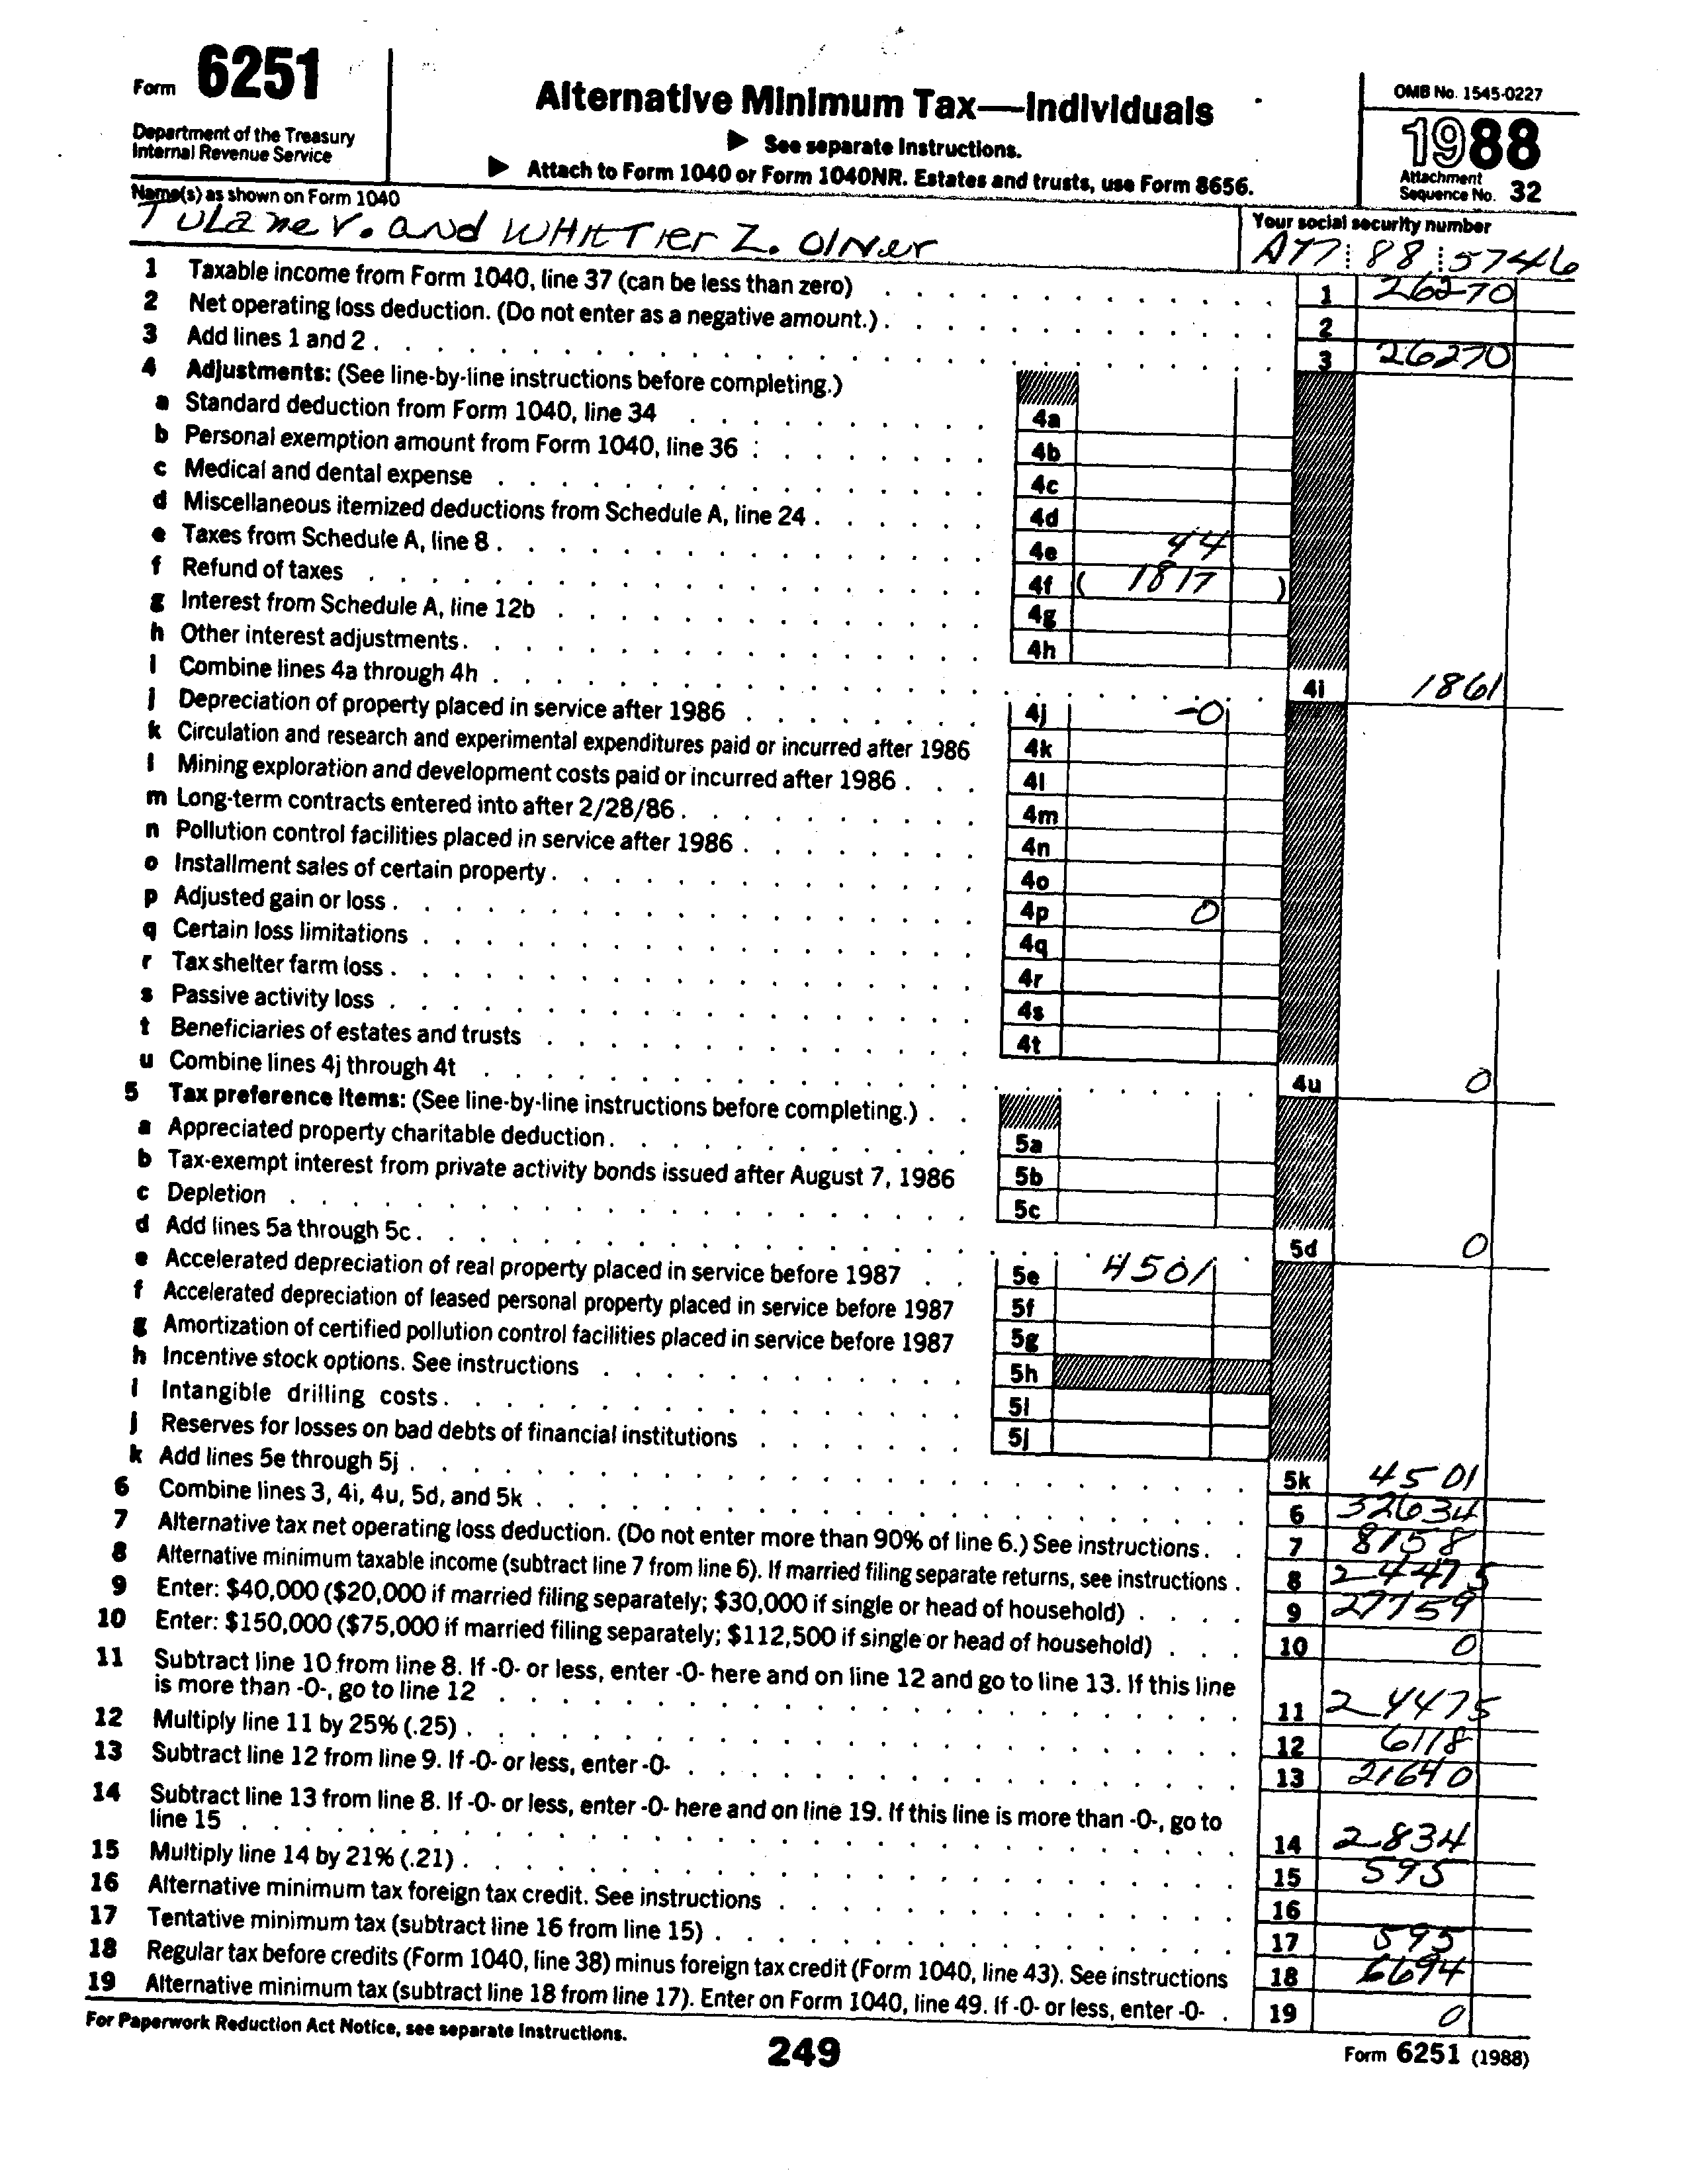 Form 6251
Department of the Treasury
Internal Revenue Service
Alternative Minimum Tax—Individuals
▶ See separate Instructions.
▶ Attach to Form 1040 or Form 1040NR. Estates and trusts, use Form 8656.
OMB No. 1545-0227
1988
Attachment
Sequence No. 32
Name(s) as shown on Form 1040
Your social security number
TULane V. and WHITTier Z. Olner
A77 88 5746
1 Taxable income from Form 1040, line 37 (can be less than zero) 1 26270
2 Net operating loss deduction. (Do not enter as a negative amount.) 2
3 Add lines 1 and 2 3 26270
4 Adjustments: (See line-by-line instructions before completing.)
a Standard deduction from Form 1040, line 34 4a
b Personal exemption amount from Form 1040, line 36 4b
c Medical and dental expense 4c
d Miscellaneous itemized deductions from Schedule A, line 24 4d
e Taxes from Schedule A, line 8 4e 44
f Refund of taxes 4f ( 1817 )
g Interest from Schedule A, line 12b 4g
h Other interest adjustments 4h
i Combine lines 4a through 4h 4i 1861
j Depreciation of property placed in service after 1986 4j -0
k Circulation and research and experimental expenditures paid or incurred after 1986 4k
l Mining exploration and development costs paid or incurred after 1986 4l
m Long-term contracts entered into after 2/28/86 4m
n Pollution control facilities placed in service after 1986 4n
o Installment sales of certain property 4o
p Adjusted gain or loss 4p 0
q Certain loss limitations 4q
r Tax shelter farm loss 4r
s Passive activity loss 4s
t Beneficiaries of estates and trusts 4t
u Combine lines 4j through 4t 4u 0
5 Tax preference items: (See line-by-line instructions before completing.)
a Appreciated property charitable deduction 5a
b Tax-exempt interest from private activity bonds issued after August 7, 1986 5b
c Depletion 5c
d Add lines 5a through 5c 5d 0
e Accelerated depreciation of real property placed in service before 1987 5e 4501
f Accelerated depreciation of leased personal property placed in service before 1987 5f
g Amortization of certified pollution control facilities placed in service before 1987 5g
h Incentive stock options. See instructions 5h
i Intangible drilling costs 5i
j Reserves for losses on bad debts of financial institutions 5j
k Add lines 5e through 5j 5k 4501
6 Combine lines 3, 4i, 4u, 5d, and 5k 6 32634
7 Alternative tax net operating loss deduction. (Do not enter more than 90% of line 6.) See instructions 7 8158
8 Alternative minimum taxable income (subtract line 7 from line 6). If married filing separate returns, see instructions 8 24475
9 Enter: $40,000 ($20,000 if married filing separately; $30,000 if single or head of household) 9 27759
10 Enter: $150,000 ($75,000 if married filing separately; $112,500 if single or head of household) 10 0
11 Subtract line 10 from line 8. If -0- or less, enter -0- here and on line 12 and go to line 13. If this line
is more than -0-, go to line 12 11 24475
12 Multiply line 11 by 25% (.25) 12 6118
13 Subtract line 12 from line 9. If -0- or less, enter -0- 13 21640
14 Subtract line 13 from line 8. If -0- or less, enter -0- here and on line 19. If this line is more than -0-, go to
line 15 14 2834
15 Multiply line 14 by 21% (.21) 15 595
16 Alternative minimum tax foreign tax credit. See instructions 16
17 Tentative minimum tax (subtract line 16 from line 15) 17 595
18 Regular tax before credits (Form 1040, line 38) minus foreign tax credit (Form 1040, line 43). See instructions 18 6694
19 Alternative minimum tax (subtract line 18 from line 17). Enter on Form 1040, line 49. If -0- or less, enter -0- 19 0
For Paperwork Reduction Act Notice, see separate Instructions.
249
Form 6251 (1988)